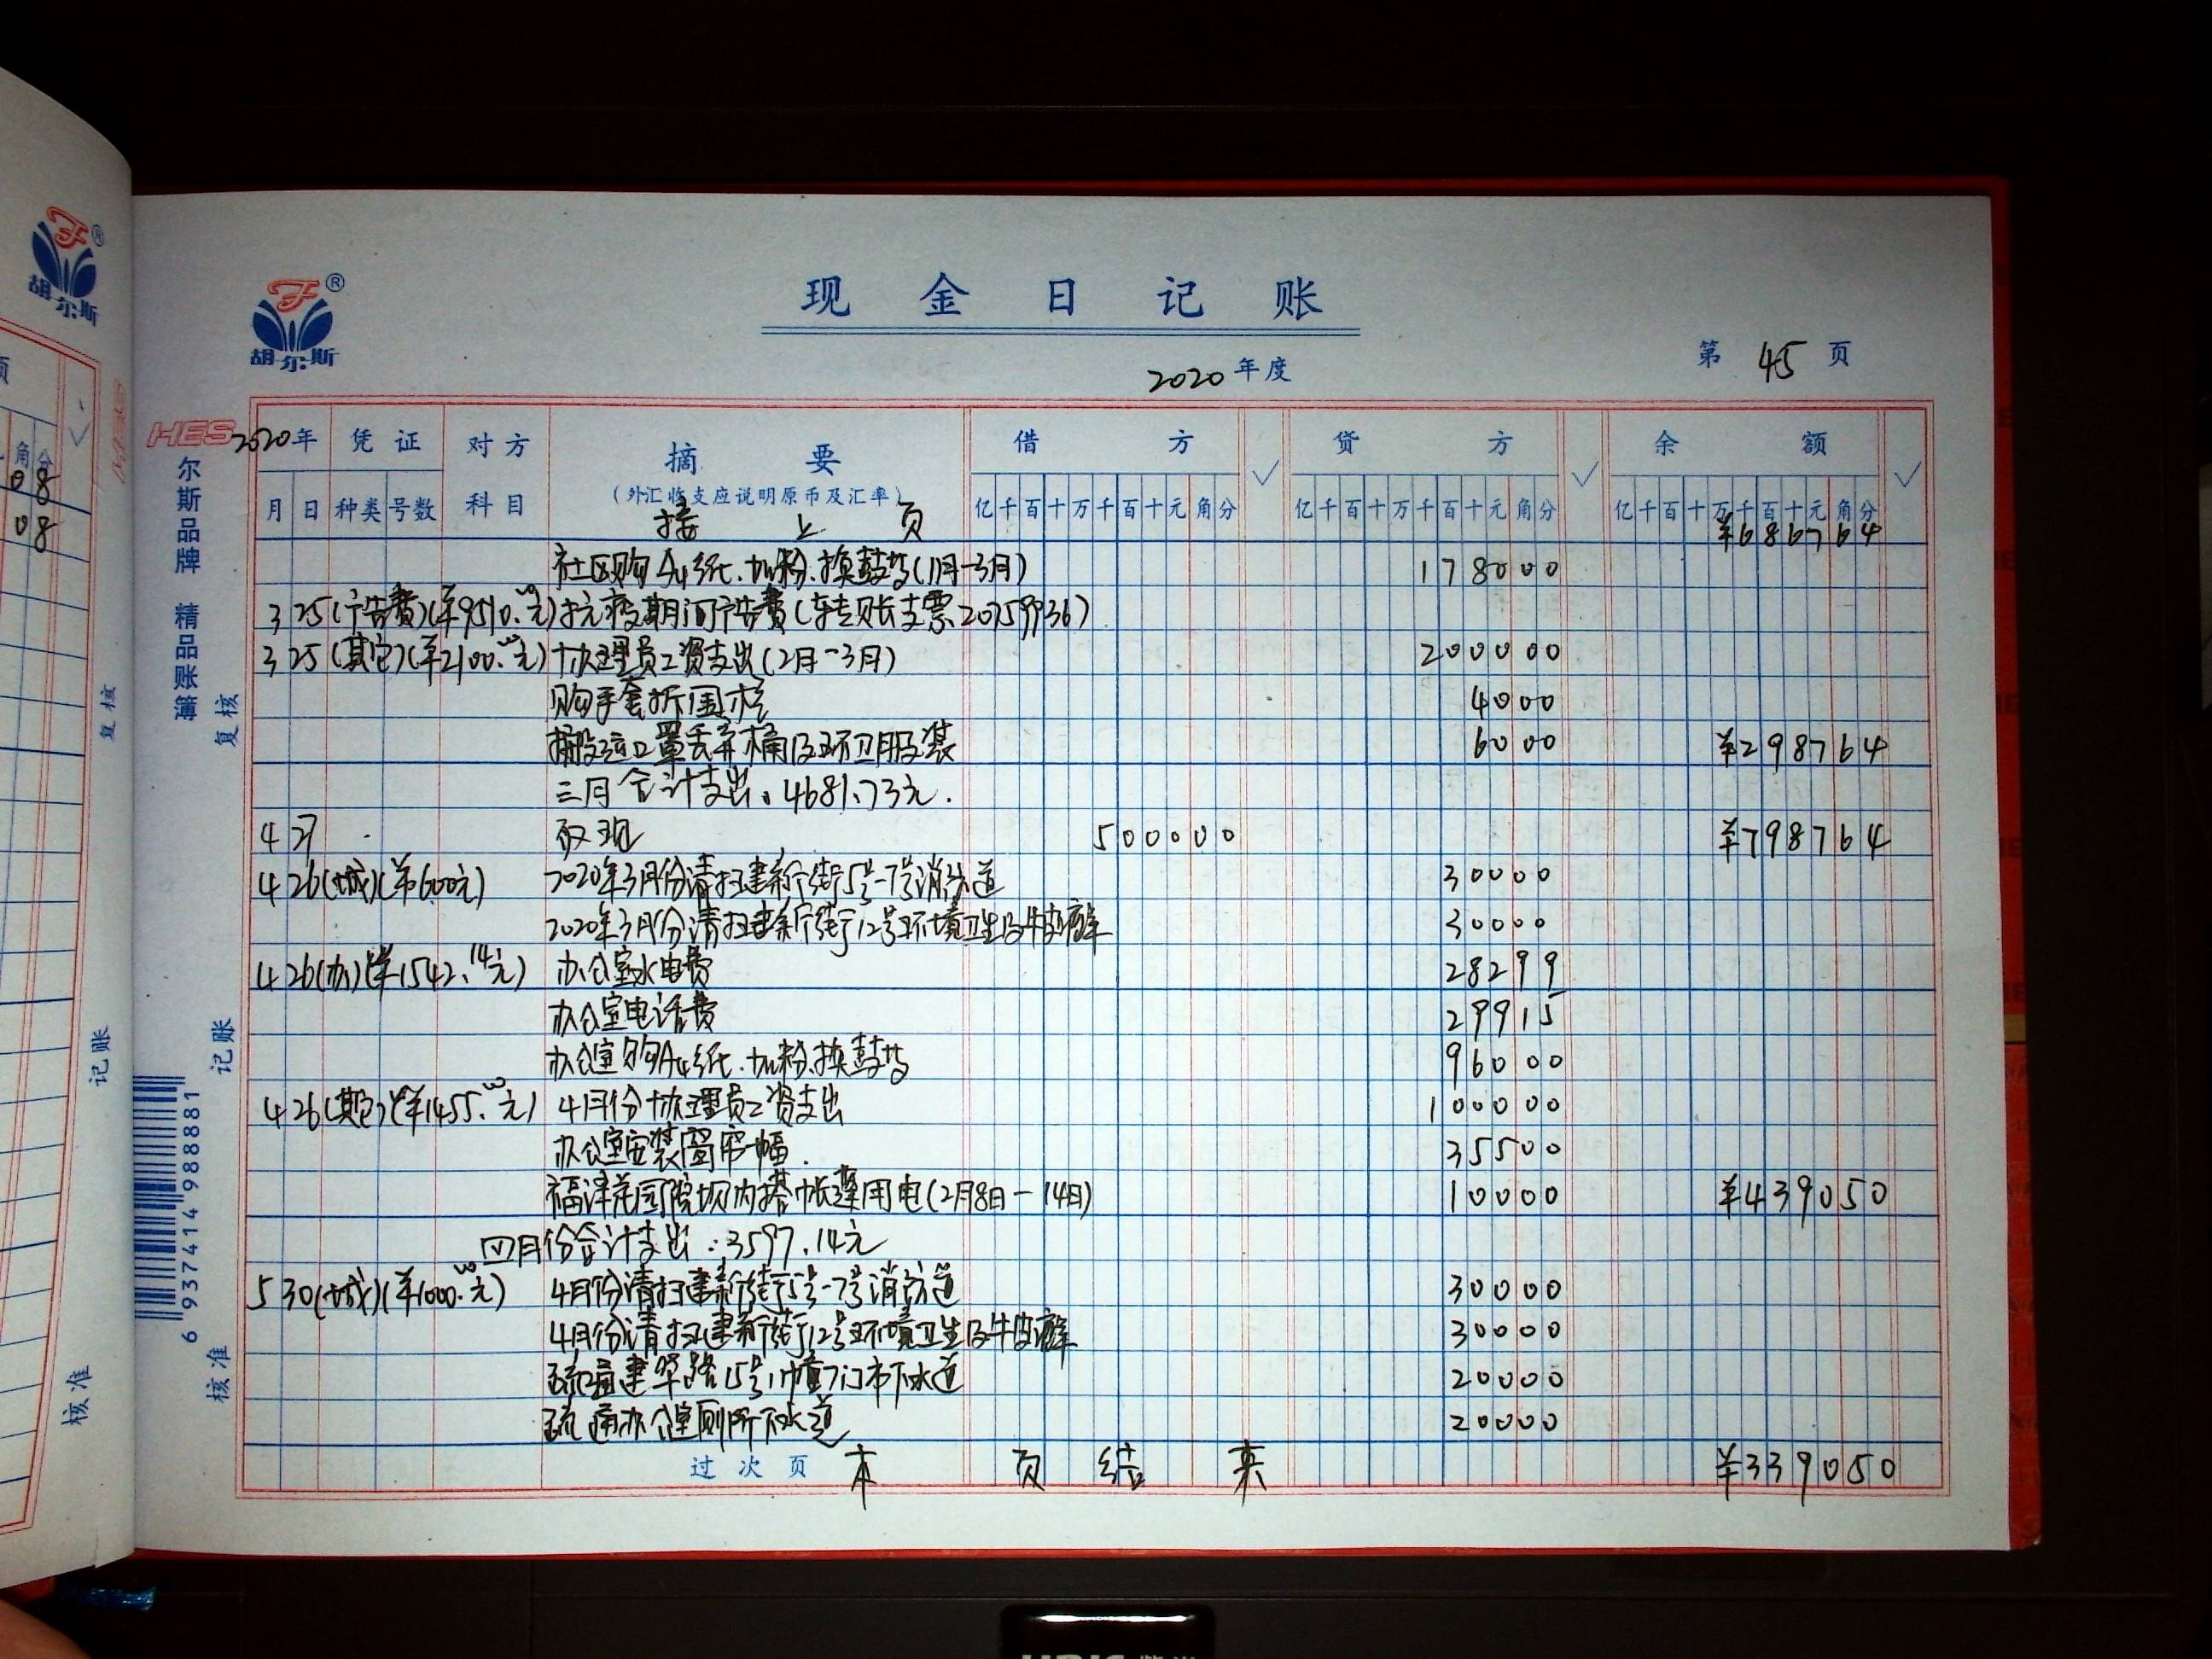 胡尔斯
现金日记账
2020年度
第45页
HES 2020年 凭证 对方 摘要 借方 贷方 余额
月 日 种类 号数 科目 (外汇收支应说明原币及汇率) 亿千百十万千百十元角分 亿千百十万千百十元角分 亿千百十万千百十元角分
接上页 ¥686764
社区购A4纸、加粉、换鼓芯(1月-3月) 178000
3 25(广告费)(¥9510.00元)抗疫期间广告费(转账支票20759936)
3 25(其它)(¥2100.00元)协理员工资支出(2月-3月) 200000
购手套拆围栏 4000
搬运口罩丢弃桶及环卫服装 6000 ¥298764
三月合计支出:4681.73元.
4 27 取现 500000 ¥798764
4 26(城)(¥600元) 2020年3月份清扫建新街5号-7号消防道 30000
2020年3月份清扫建新街12号环境卫生及牛皮癣 30000
4 26(办)(¥1542.14元) 办公室水电费 28299
办公室电话费 29915
办公室购A4纸、加粉、换鼓芯 96000
4 26(其它)(¥1455.00元) 4月份协理员工资支出 100000
办公室安装窗帘一幅. 35500
福泽花园院坝内搭帐蓬用电(2月8日-14日) 10000 ¥439050
四月份合计支出:3597.14元
5 30(城)(¥1000.00元) 4月份清扫建新街5号-7号消防道 30000
4月份清扫建新街12号环境卫生及牛皮癣 30000
疏通建华路15号1幢门市下水道 20000
疏通办公室厕所下水道 20000
过次页 本页结束 ¥339050
尔斯品牌 精品账簿
复核
记账
核准
6 937414 988881
胡尔斯
角分
08
08
复核
记账
核准